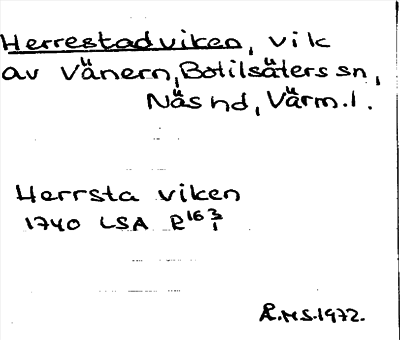 Herrestadviken, vik
av Vänern, Botilsäters sn,
Näs hd, Värm.l.
Herrsta viken
1740 LSA R16 3/1
R.M.S.1972.